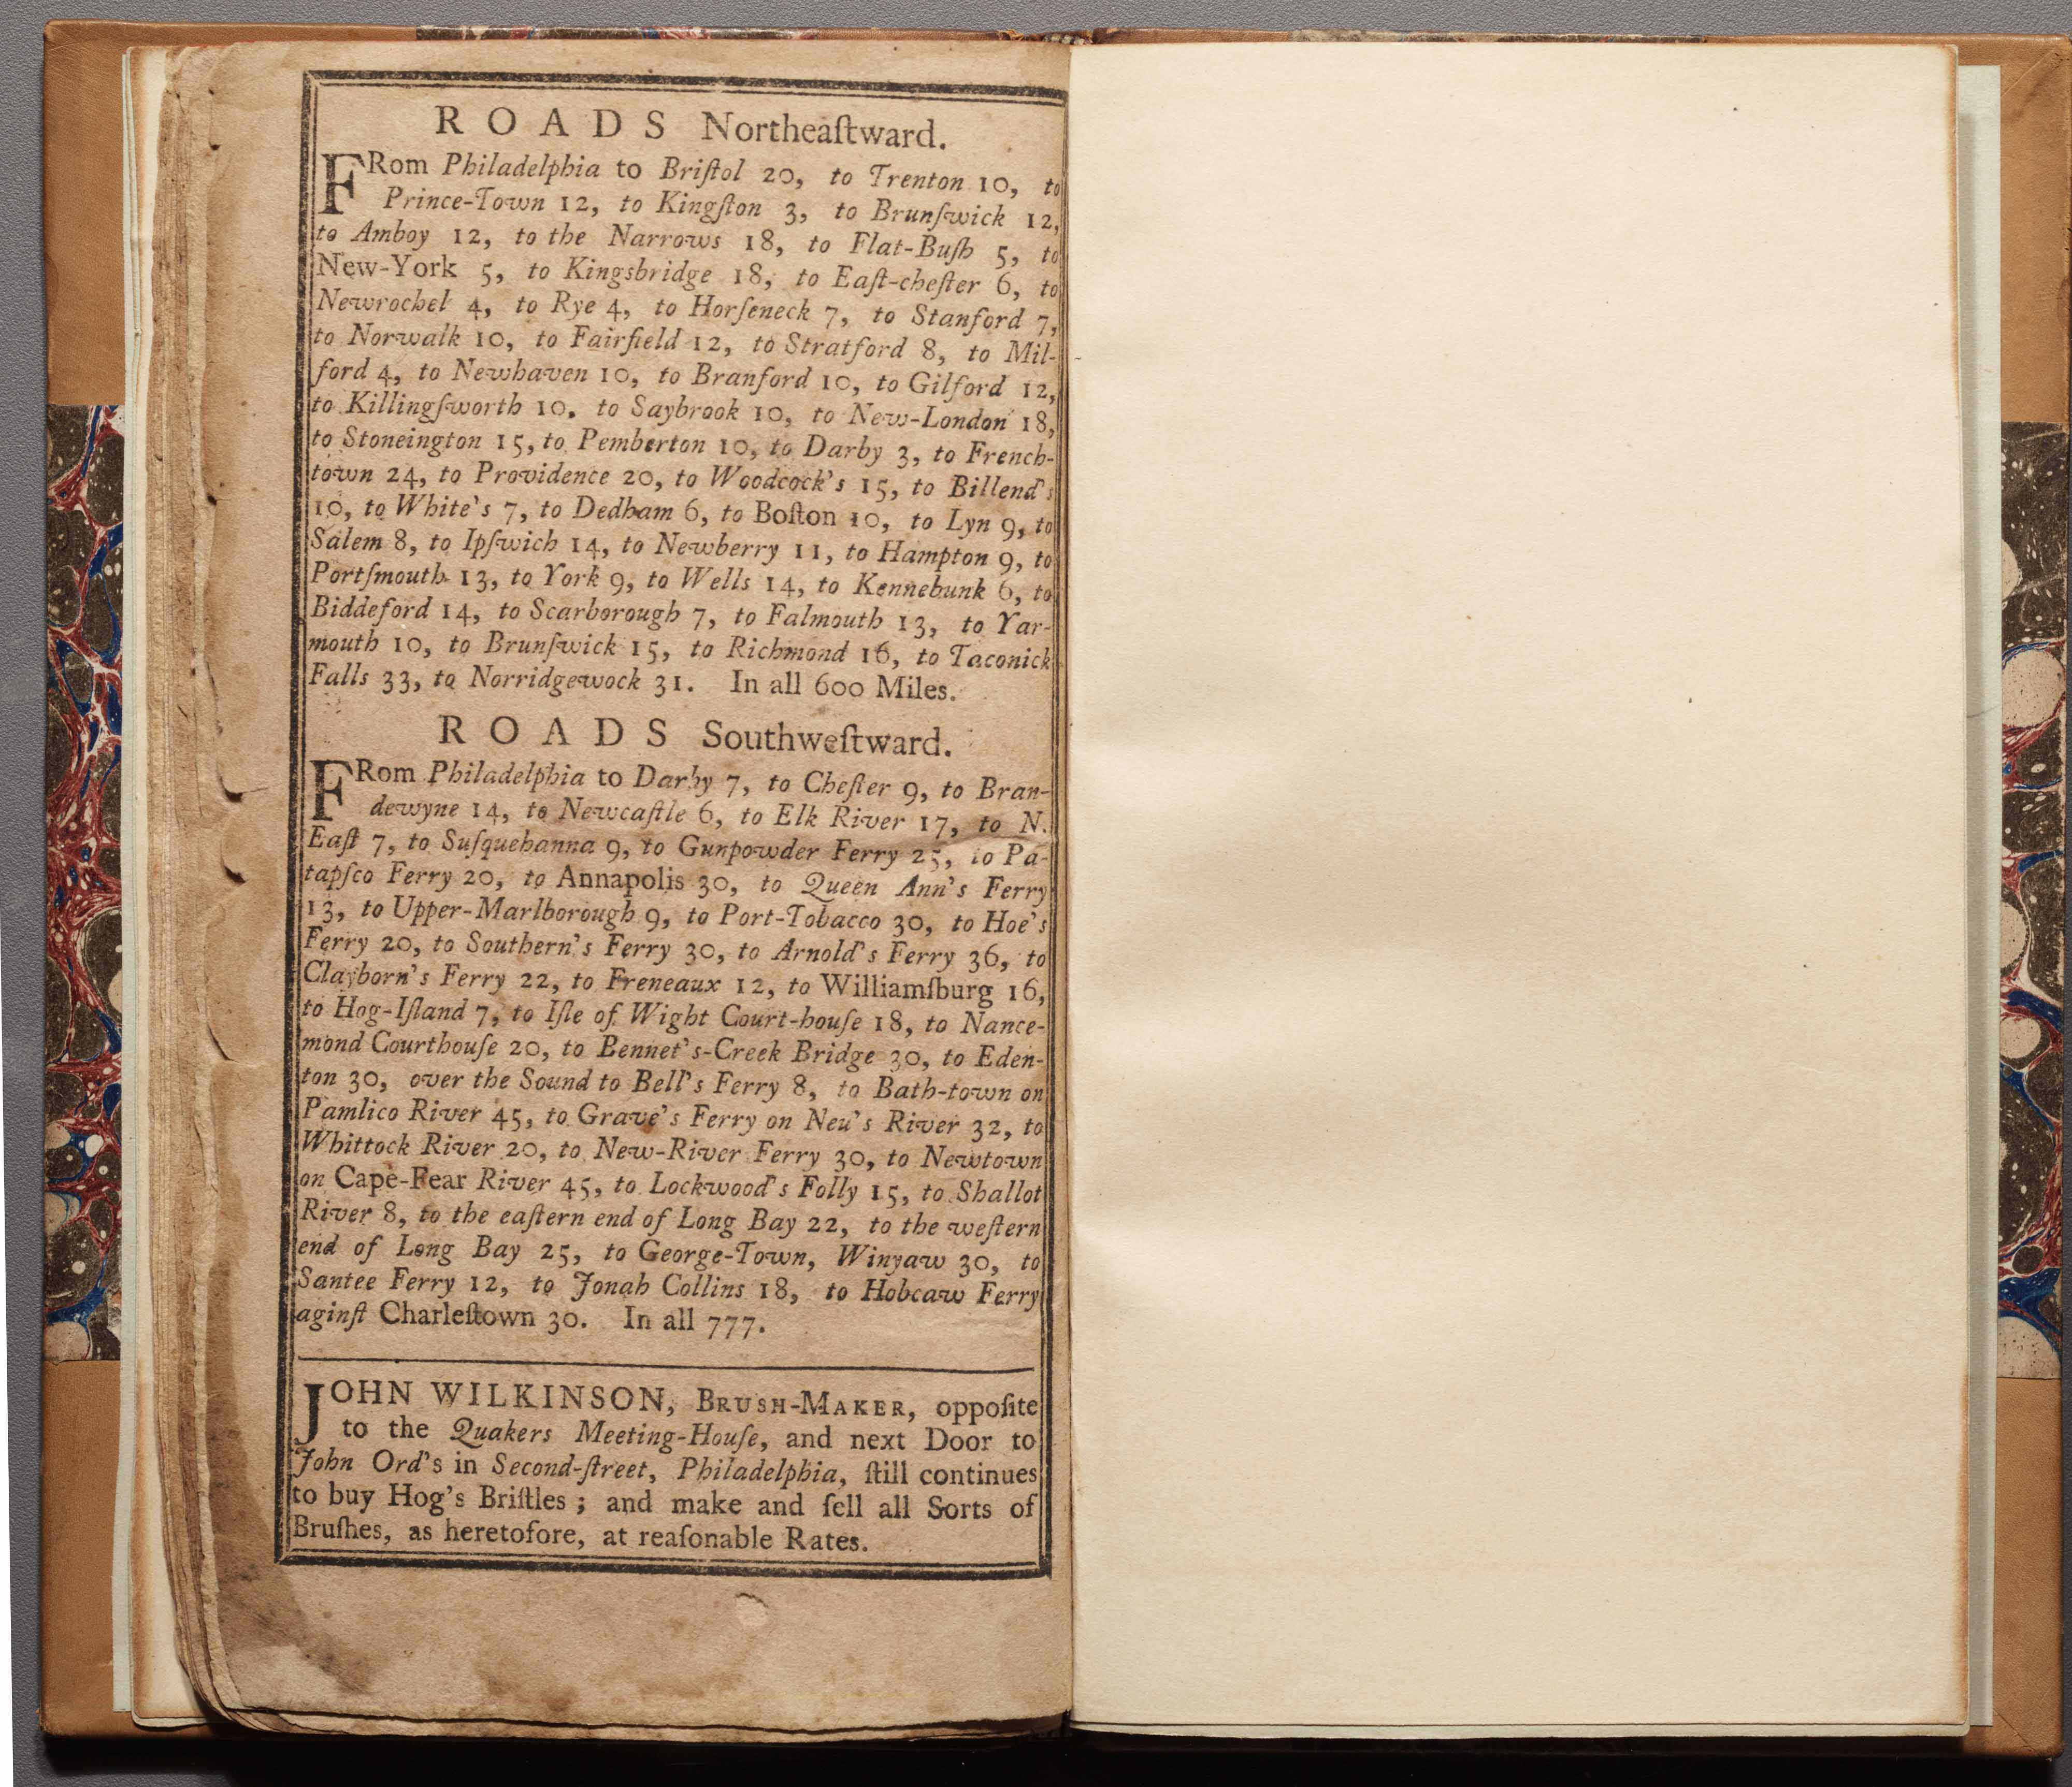 ROADS Northeaſtward.
FRom Philadelphia to Briſtol 20, to Trenton 10, to
Prince-Town 12, to Kingſton 3, to Brunſwick 12,
to Amboy 12, to the Narrows 18, to Flat-Buſh 5, to
New-York 5, to Kingsbridge 18, to Eaſt-cheſter 6, to
Newrochel 4, to Rye 4, to Horſeneck 7, to Stanford 7,
to Norwalk 10, to Fairfield 12, to Stratford 8, to Mil-
ford 4, to Newhaven 10, to Branford 10, to Gilford 12,
to Killingſworth 10, to Saybrook 10, to New-London 18,
to Stoneington 15, to Pemberton 10, to Darby 3, to French-
town 24, to Providence 20, to Woodcock's 15, to Billend's
10, to White's 7, to Dedham 6, to Boſton 10, to Lyn 9, to
Salem 8, to Ipſwich 14, to Newberry 11, to Hampton 9, to
Portſmouth 13, to York 9, to Wells 14, to Kennebunk 6, to
Biddeford 14, to Scarborough 7, to Falmouth 13, to Yar-
mouth 10, to Brunſwick 15, to Richmond 16, to Taconick
Falls 33, to Norridgewock 31. In all 600 Miles.
ROADS Southweſtward.
FRom Philadelphia to Darby 7, to Cheſter 9, to Bran-
dewyne 14, to Newcaſtle 6, to Elk River 17, to N.
Eaſt 7, to Suſquehanna 9, to Gunpowder Ferry 25, to Pa-
tapſco Ferry 20, to Annapolis 30, to Queen Ann's Ferry
13, to Upper-Marlborough 9, to Port-Tobacco 30, to Hoe's
Ferry 20, to Southern's Ferry 30, to Arnold's Ferry 36, to
Clayborn's Ferry 22, to Freneaux 12, to Williamſburg 16,
to Hog-Iſland 7, to Iſle of Wight Court-houſe 18, to Nance-
mond Courthouſe 20, to Bennet's-Creek Bridge 30, to Eden-
ton 30, over the Sound to Bell's Ferry 8, to Bath-town on
Pamlico River 45, to Grave's Ferry on Neu's River 32, to
Whittock River 20, to New-River Ferry 30, to Newtown
on Cape-Fear River 45, to Lockwood's Folly 15, to Shallot
River 8, to the eaſtern end of Long Bay 22, to the weſtern
end of Long Bay 25, to George-Town, Winyaw 30, to
Santee Ferry 12, to Jonah Collins 18, to Hobcaw Ferry
aginſt Charleſtown 30. In all 777.
JOHN WILKINSON, BRUSH-MAKER, oppoſite
to the Quakers Meeting-Houſe, and next Door to
John Ord's in Second-ſtreet, Philadelphia, ſtill continues
to buy Hog's Briſtles; and make and ſell all Sorts of
Bruſhes, as heretofore, at reaſonable Rates.